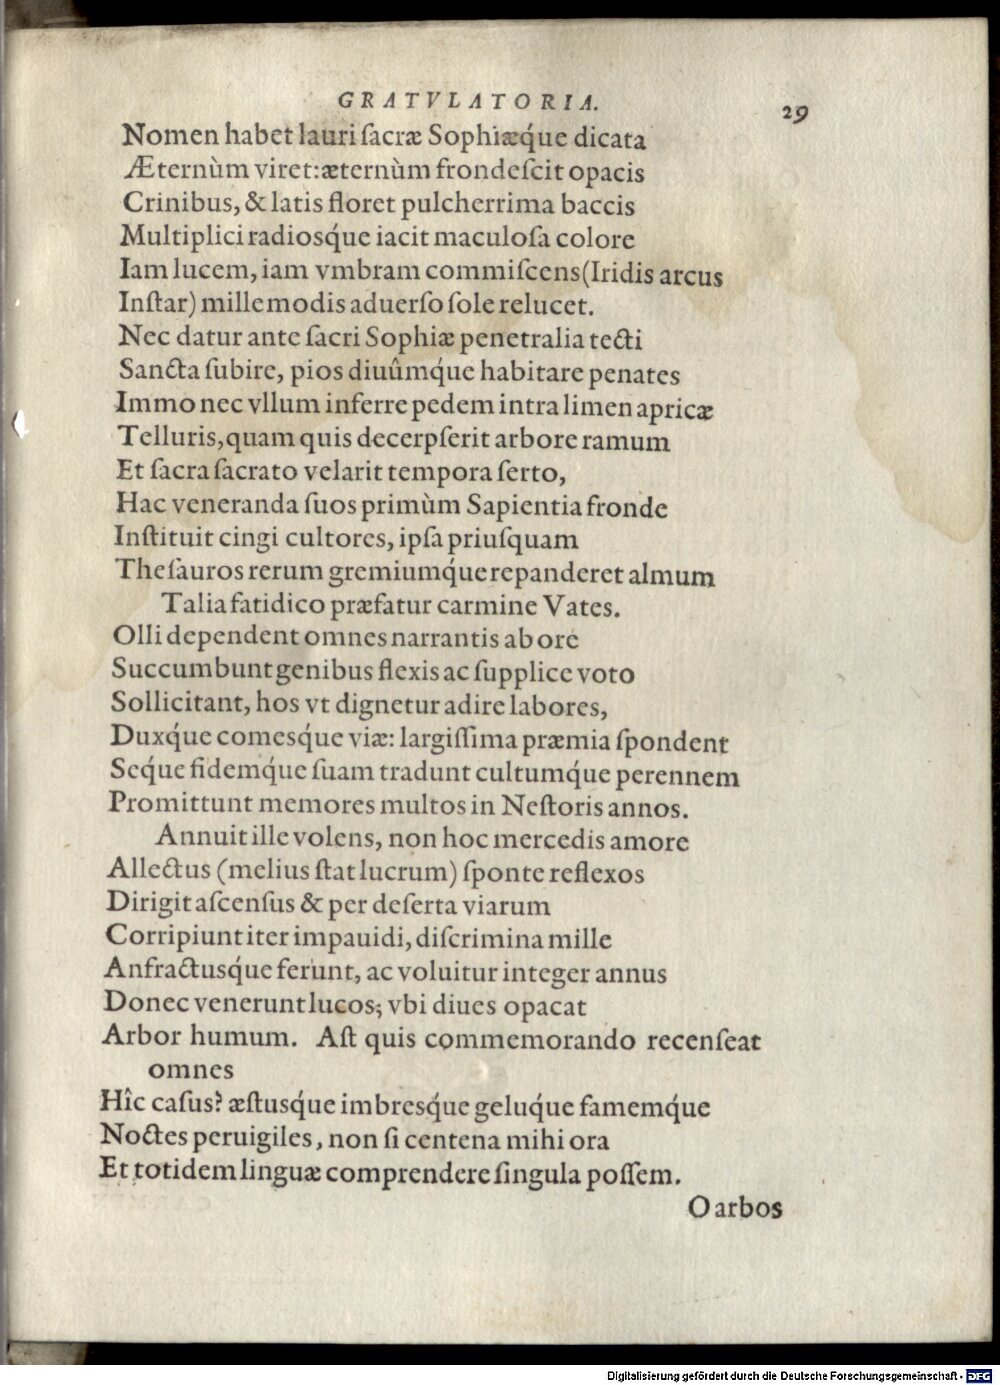 GRATVLATORIA. 29
Nomen habet lauri ſacræ Sophiæq́ue dicata
Æternùm viret: æternùm frondeſcit opacis
Crinibus, & latis floret pulcherrima baccis
Multiplici radiosq́ue iacit maculoſa colore
Iam lucem, iam vmbram commiſcens (Iridis arcus
Inſtar) mille modis aduerſo ſole relucet.
Nec datur ante ſacri Sophiæ penetralia tecti
Sancta ſubire, pios diuûmq́ue habitare penates
Immo nec vllum inferre pedem intra limen apricæ
Telluris, quam quis decerpſerit arbore ramum
Et ſacra ſacrato velarit tempora ſerto,
Hac veneranda ſuos primùm Sapientia fronde
Inſtituit cingi cultores, ipſa priuſquam
Theſauros rerum gremiumq́ue repanderet almum
Talia fatidico præfatur carmine Vates.
Olli dependent omnes narrantis ab ore
Succumbunt genibus flexis ac ſupplice voto
Sollicitant, hos vt dignetur adire labores,
Duxq́ue comesque viæ: largiſſima præmia ſpondent
Seq́ue fidemq́ue ſuam tradunt cultumq́ue perennem
Promittunt memores multos in Neſtoris annos.
Annuit ille volens, non hoc mercedis amore
Allectus (melius ſtat lucrum) ſponte reflexos
Dirigit aſcenſus & per deſerta viarum
Corripiunt iter impauidi, diſcrimina mille
Anfractusq́ue ferunt, ac voluitur integer annus
Donec venerunt lucos; vbi diues opacat
Arbor humum. Aſt quis commemorando recenſeat
omnes
Hîc caſus? æſtusq́ue imbresq́ue geluq́ue famemq́ue
Noctes peruigiles, non ſi centena mihi ora
Et totidem linguæ comprendere ſingula poſſem.
O arbos
Digitalisierung gefördert durch die Deutsche Forschungsgemeinschaft - DFG